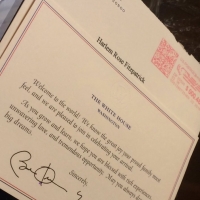 Harlem Rose Fitzpatrick
THE WHITE HOUSE
WASHINGTON
Welcome to the world! We know the great joy your proud family must
feel, and we are pleased to join in celebrating your arrival.
As you grow and learn, we hope you are blessed with rich experiences,
unwavering love, and tremendous opportunity. May you always
big dreams.
Sincerely,